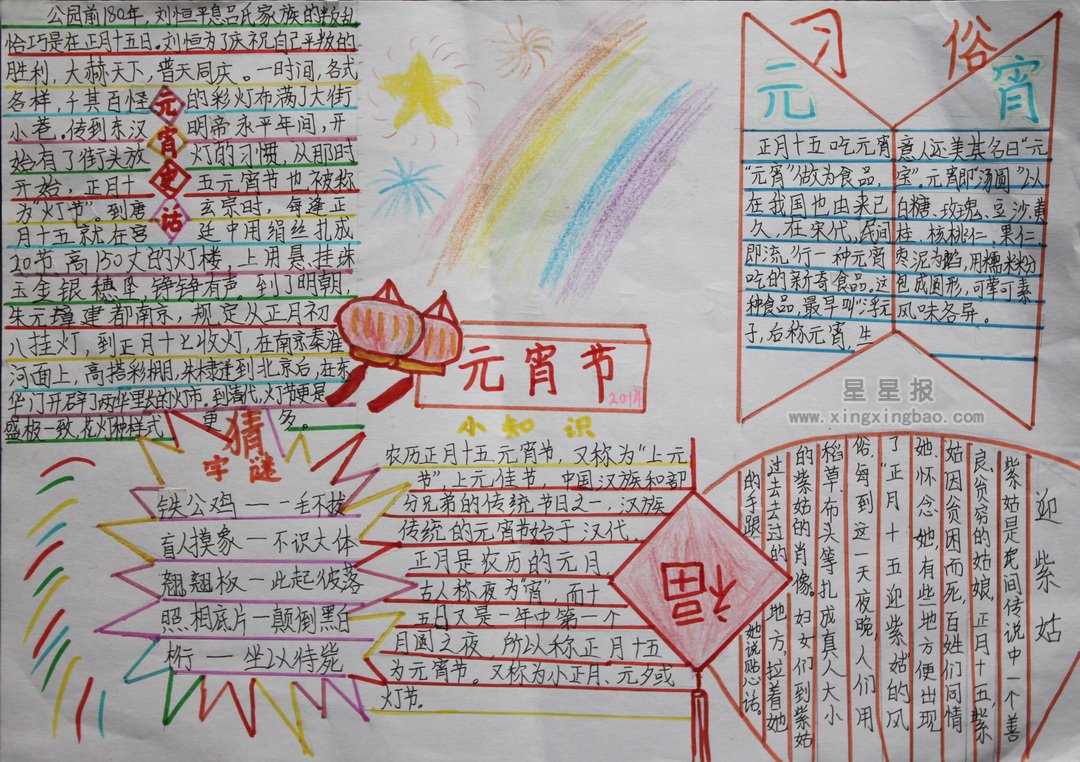 公园前180年,刘恒平息吕氏家族的叛乱
恰巧是在正月十五日。刘恒为了庆祝自己平叛的
胜利,大赫天下,普天同庆。一时间,各式
各样,千其百怪的彩灯布满了大街
小巷。传到东汉明帝永平年间,开
始有了街头放灯的习惯,从那时
开始,正月十五元宵节也被称
为“灯节”。到唐玄宗时,每逢正
月十五就在宫廷中用绢丝扎成
20节,高150丈的灯楼,上用悬挂珠
玉金银穗坠铮铮有声。到了明朝,
朱元璋建都南京,规定从正月初
八挂灯,到正月十七收灯,在南京秦淮
河面上,高搭彩棚,朱棣迁到北京后,在东
华门开辟了两华里长的灯市。到清代,灯节更是
盛极一致,花灯种样式更多。
元宵史话
元宵节
2014
习俗
元宵
正月十五吃元宵
“元宵”做为食品,
在我国也由来已
久,在宋代,民间
即流行一种元宵
吃的新奇食品。这
种食品,最早叫“浮元
子,后称元宵,生
意人还美其名曰“元
宝”。元宵即“汤圆”以
白糖、玫瑰、豆沙、黄
桂、核桃仁、果仁、
枣泥为馅,用糯米粉
包成圆形,可荤可素
风味各异。
星星报
www.xingxingbao.com
猜
字谜
铁公鸡——毛不拔
盲人摸象——不识大体
翘翘板——此起彼落
照相底片——颠倒黑白
桁——坐以待毙
小知识
农历正月十五元宵节,又称为“上元
节”,上元佳节,中国汉族和部
分兄弟的传统节日之一,汉族
传统的元宵节始于汉代。
正月是农历的元月
古人称夜为“宵”,而十
五日又是一年中第一个
月圆之夜,所以称正月十五
为元宵节。又称为小正月、元夕或
灯节。
福
迎紫姑
紫姑是民间传说中一个善
良、贫穷的姑娘,正月十五,紫
姑因贫困而死,百姓们同情
她、怀念她,有些地方便出现
了“正月十五迎紫姑”的风
俗,每到这一天夜晚,人们用
稻草、布头等扎成真人大小
的紫姑的肖像。妇女们到紫姑
过去去过的地方,拉着她
的手跟她说贴心话。